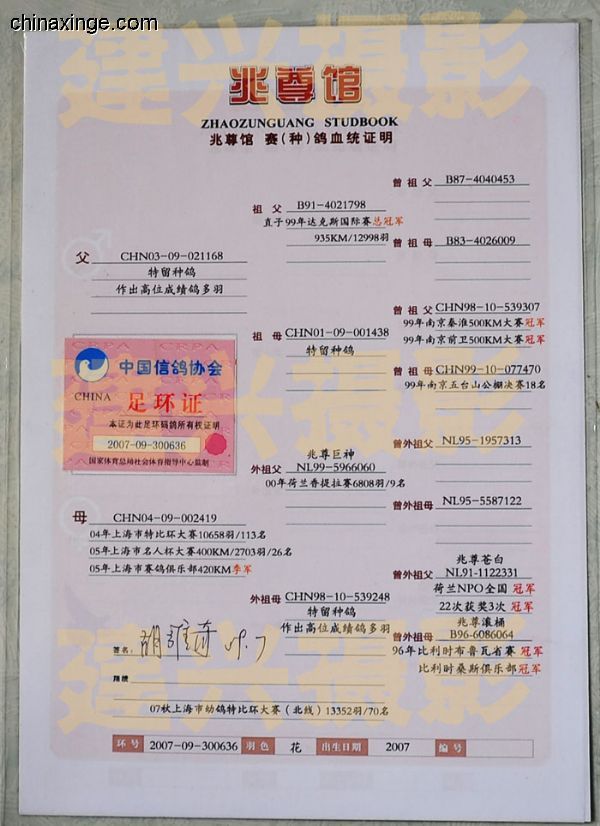 chinaxinge.com
建兴摄影
兆尊馆
ZHAOZUNGUANG STUDBOOK
兆尊馆 赛(种)鸽血统证明
曾祖父 B87-4040453
祖父 B91-4021798
直子99年达克斯国际赛总冠军
935KM/12998羽
曾祖母 B83-4026009
父 CHN03-09-021168
特留种鸽
作出高位成绩鸽多羽
曾祖父 CHN98-10-539307
99年南京秦淮500KM大赛冠军
99年南京前卫500KM大赛冠军
祖母 CHN01-09-001438
特留种鸽
曾祖母 CHN99-10-077470
99年南京五台山公棚决赛18名
CRPA CRPA CRPA
中国信鸽协会
CHINA 足环证
本证为此足环码鸽所有权证明
2007-09-300636
国家体育总局社会体育指导中心监制
建兴摄影
曾外祖父 NL95-1957313
兆尊巨神
外祖父 NL99-5966060
00年荷兰香提拉赛6808羽/9名
曾外祖母 NL95-5587122
母 CHN04-09-002419
04年上海市特比环大赛10658羽/113名
05年上海市名人杯大赛400KM/2703羽/26名
05年上海市赛鸽俱乐部420KM季军
兆尊苍白
曾外祖父 NL91-1122331
荷兰NPO全国 冠军
22次获奖3次 冠军
外祖母 CHN98-10-539248
特留种鸽
作出高位成绩鸽多羽
兆尊滚桶
曾外祖母 B96-6086064
96年比利时布鲁瓦省赛 冠军
比利时桑斯俱乐部冠军
建兴摄影
签名: 09.7
翔绩
07秋上海市幼鸽特比环大赛(北线)13352羽/70名
环号 2007-09-300636 羽色 花 出生日期 2007 编号